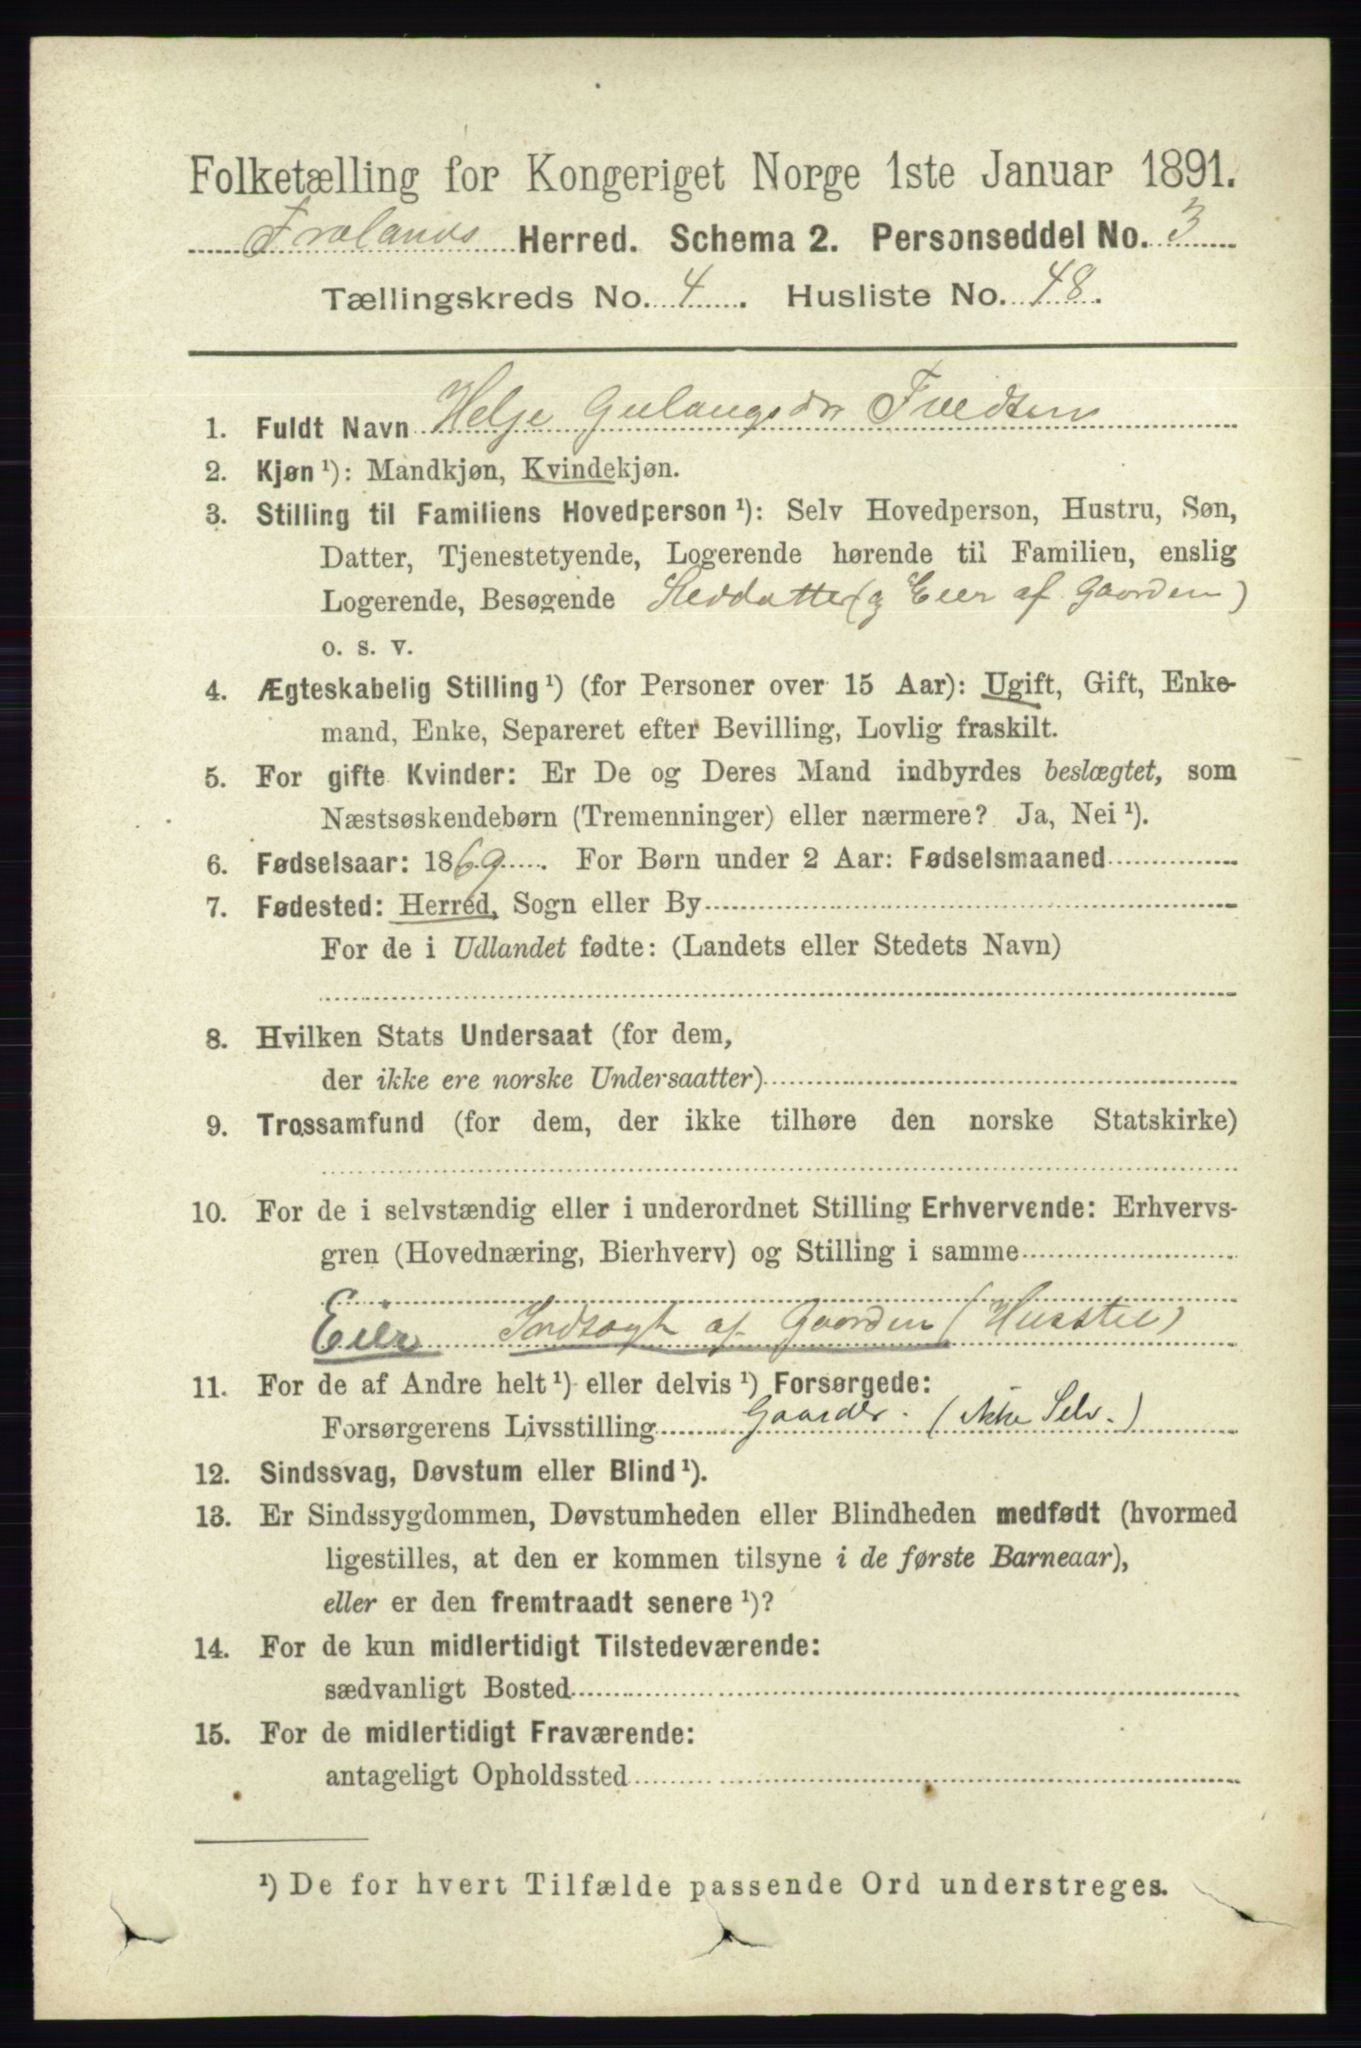 Folketælling for Kongeriget Norge 1ste Januar 1891.
Frolands Herred. Schema 2. Personseddel No. 3
Tællingskreds No. 4. Husliste No. 48.
1. Fuldt Navn Helje Gulaugsdr
2. Kjøn ¹): Mandkjøn, Kvindekjøn.
3. Stilling til Familiens Hovedperson ¹): Selv Hovedperson, Hustru, Søn,
Datter, Tjenestetyende, Logerende hørende til Familien, enslig
Logerende, Besøgende Steddatter (og Eier af Gaarden)
o. s. v.
4. Ægteskabelig Stilling ¹) (for Personer over 15 Aar): Ugift, Gift, Enke-
mand, Enke, Separeret efter Bevilling, Lovlig fraskilt.
5. For gifte Kvinder: Er De og Deres Mand indbyrdes beslægtet, som
Næstsøskendebørn (Tremenninger) eller nærmere? Ja, Nei ¹).
6. Fødselsaar: 1869. For Børn under 2 Aar: Fødselsmaaned
7. Fødested: Herred, Sogn eller By
For de i Udlandet fødte: (Landets eller Stedets Navn)
8. Hvilken Stats Undersaat (for dem,
der ikke ere norske Undersaatter)
9. Trossamfund (for dem, der ikke tilhøre den norske Statskirke)
10. For de i selvstændig eller i underordnet Stilling Erhvervende: Erhvervs-
gren (Hovednæring, Bierhverv) og Stilling i samme
Eier Indtægt af Gaarden (Husstel)
11. For de af Andre helt ¹) eller delvis ¹) Forsørgede:
Forsørgerens Livsstilling Gaardbr. (ikke Selv.)
12. Sindssvag, Døvstum eller Blind ¹).
13. Er Sindssygdommen, Døvstumheden eller Blindheden medfødt (hvormed
ligestilles, at den er kommen tilsyne i de første Barneaar),
eller er den fremtraadt senere ¹)?
14. For de kun midlertidigt Tilstedeværende:
sædvanligt Bosted
15. For de midlertidigt Fraværende:
antageligt Opholdssted
¹) De for hvert Tilfælde passende Ord understreges.